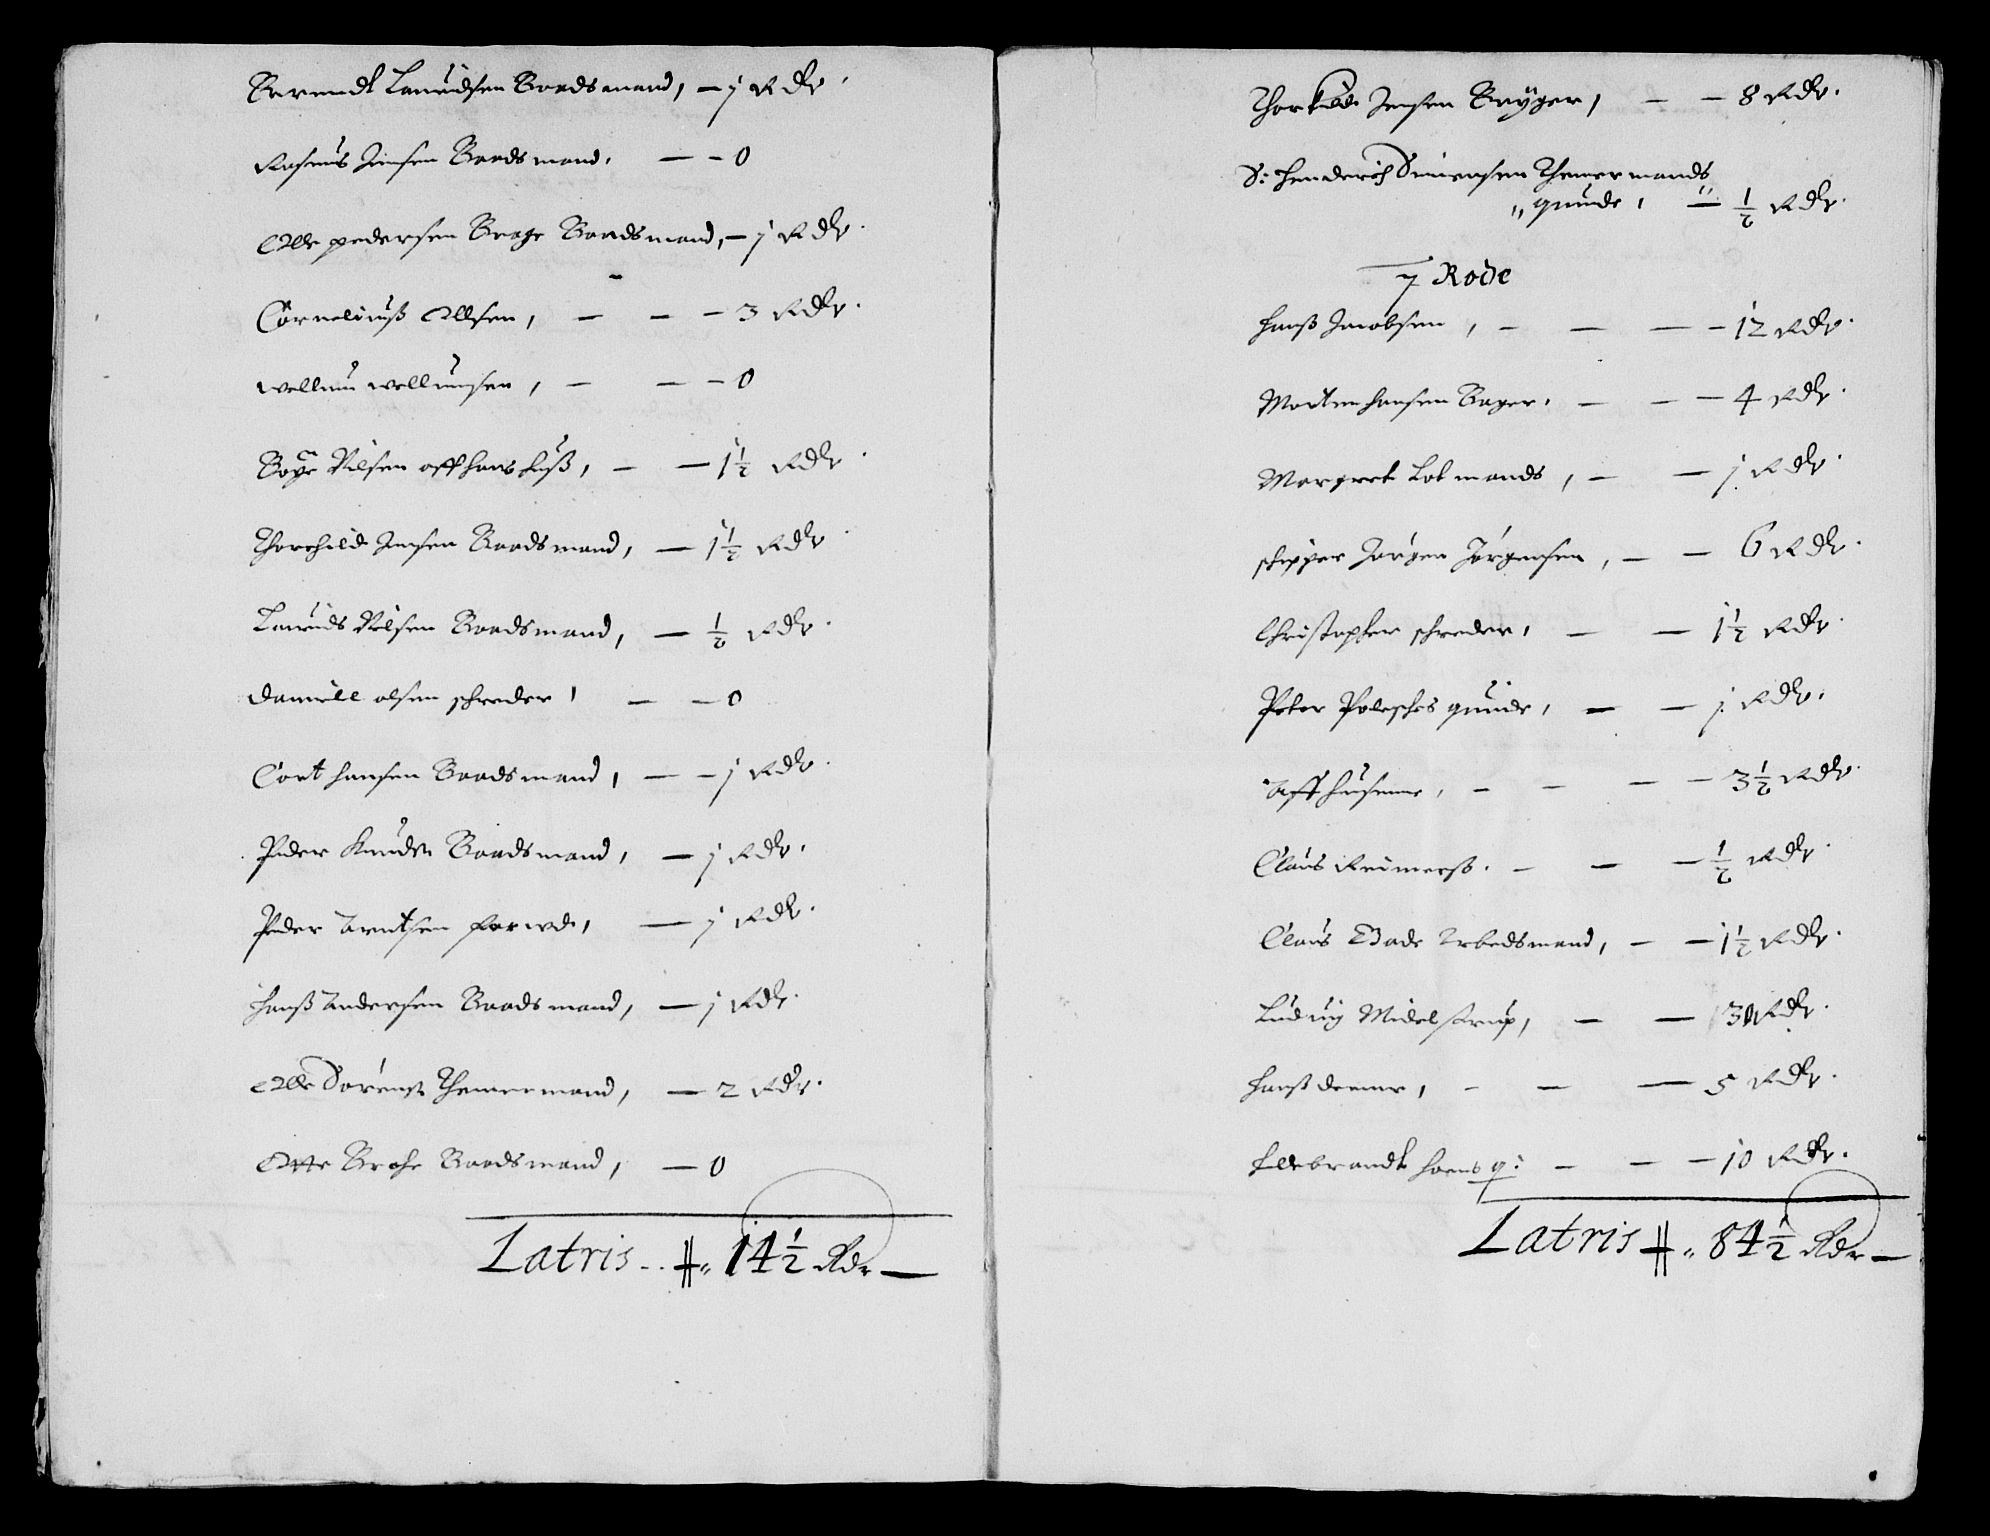 Berendt Lauridsen Baadsmand, — j Rdlr.
Rasmus Jensen Baadsmand, — — 0
Olle pedersen Brage Baadsmand, — j Rdlr.
Corneliuß Ollsen, — — — 3 Rdlr.
wellum wellumsen, — — — 0
Boye Nilsen aff hans huß, — — 1½ Rdlr.
Thorchild Jensen Baadsmand, — 1½ Rdlr.
Laurids Nilsen Baadsmand, — ½ Rdlr.
Daniell olsen schreder, — — 0
Cort hansen Baadsmand, — — j Rdlr.
Peder Knudsen Baadsmand, — j Rdlr.
Peder Arntsen — j Rdlr.
Hanß Andersen Baadsmand, — j Rdlr.
Olle Sörensen Themermand, — 2 Rdlr.
Otte Baadsmand, — 0
Latris .. 14½ Rdr —
Thorkild Jensen Bryger, — — 8 Rdlr.
S: Henderich Simensen Themermands
quinde, — ½ Rdlr.
7 Rode
Hanß Jacobsen, — — — — 12 Rdlr.
Morten hansen Bager, — — — 4 Rdlr.
Margret Lotmands, — — j Rdlr.
schipper Jørgen Jørgensen, — — 6 Rdlr.
Christopher schreder, — — 1½ Rdlr.
Peter Polesches quinde, — — j Rdlr.
Aff husenne, — — — — 3½ Rdlr.
Claus Reimerß. — — — ½ Rdlr.
Claus Bade Arbedsmand, — — 1½ Rdlr.
Luduig Midelstrup, — — 30 Rdlr.
Hanß — — — 5 Rdlr.
Hillebrandt hoens q: — — — 10 Rdlr.
Latris 84½ Rdr —